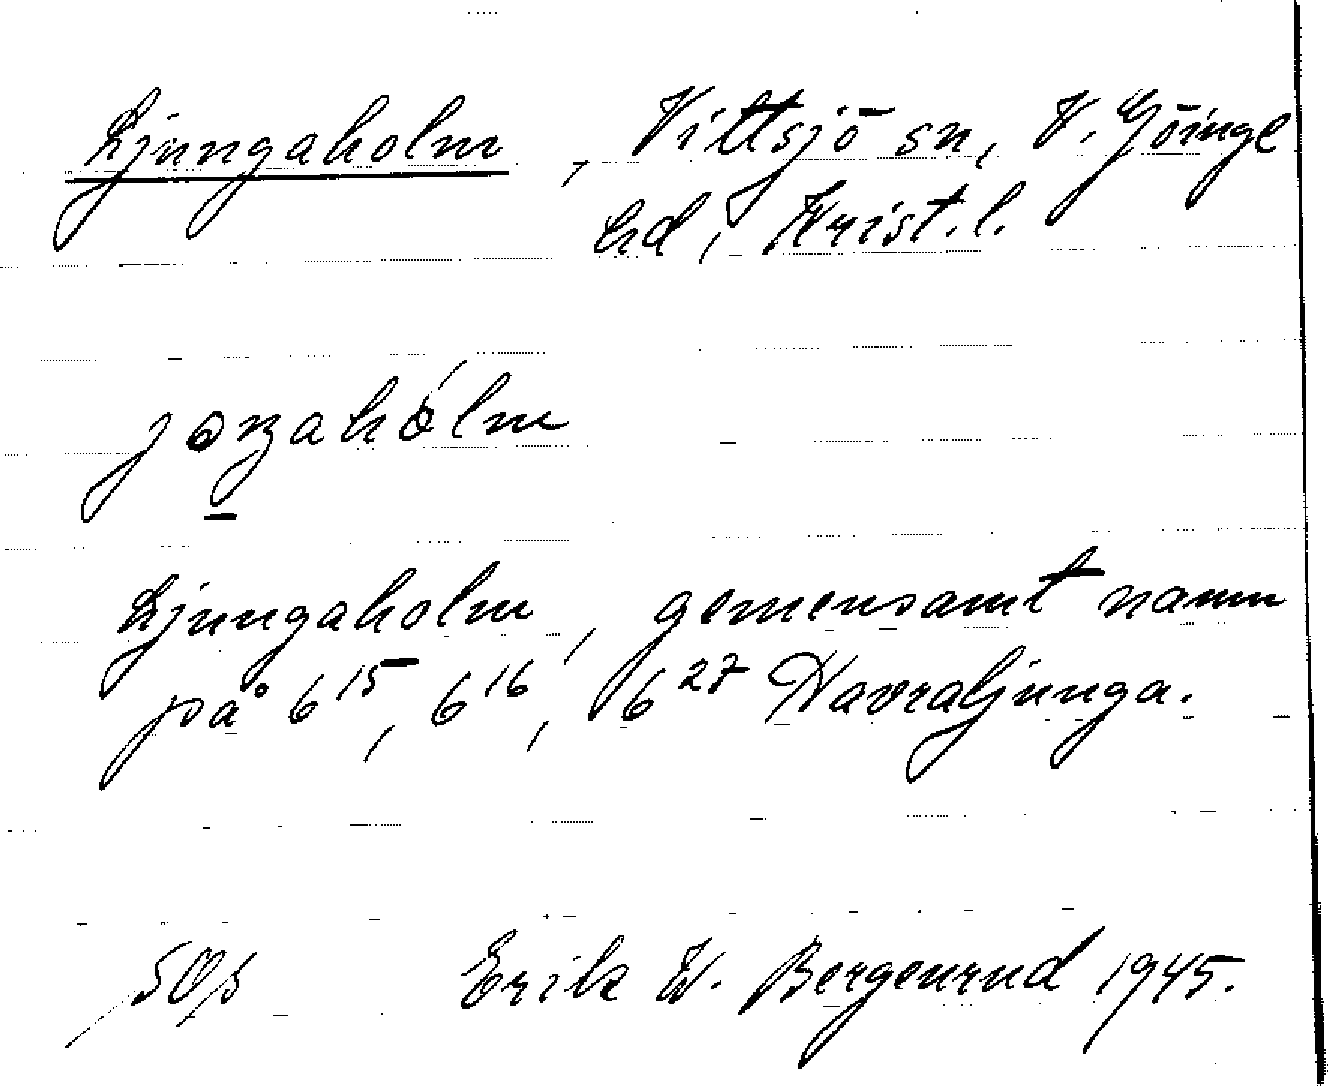 Ljungaholm, Vittsjö sn, V. Göinge
hd, Krist. l.
Ljungaholm, gemensamt namn
på 6¹⁵, 6¹⁶, 6²⁷ Havraljunga.
Erik W. Bergenrud 1945.